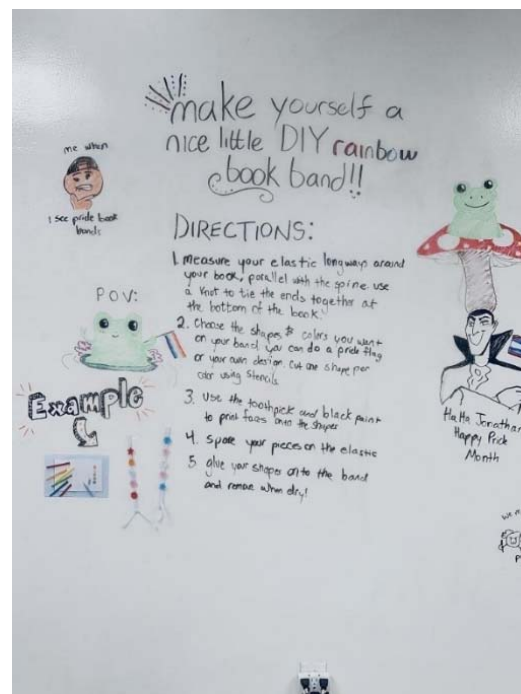 make yourself a
nice little DIY rainbow
book band!!
me when
I see pride book
bands
DIRECTIONS:
1. measure your elastic longways around
your book, parallel with the spine. use
a knot to tie the ends together at
the bottom of the book.
2. Choose the shapes & colors you want
on your band. you can do a pride flag
or your own design. Cut one shape per
color using stencils
3. Use the toothpick and black paint
to print faces onto the shapes
4. Space your pieces on the elastic
5. glue your shapes onto the band
and remove when dry!
POV:
Example
HaHa Jonathan
Happy Pride
Month